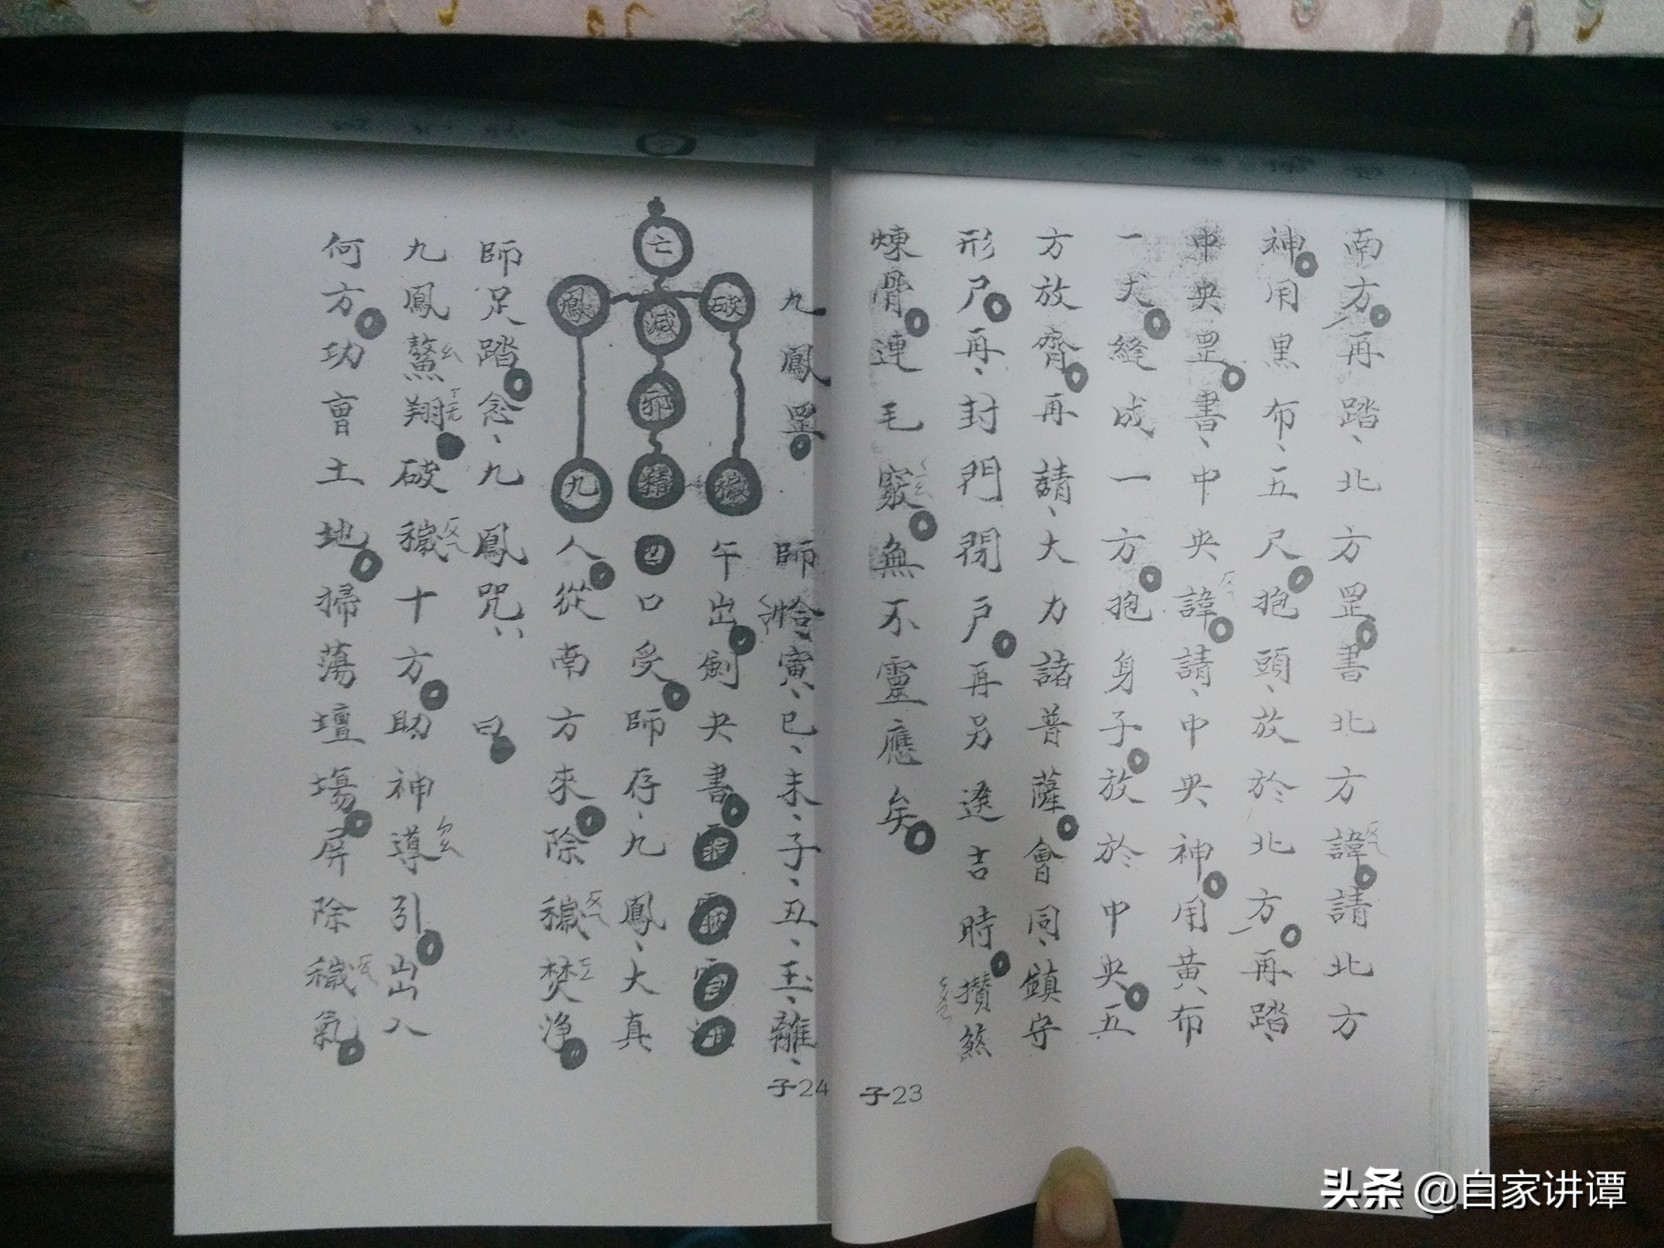 南方再踏、北方罡書北方諱請北方
神用黑布、五尺抱頭、放於北方再踏、
中央罡書、中央諱請、中央神用黃布
一丈縫成一方抱身子放於中央五
方放齊再請、大力諸普薩會同、鎮守
形尸再、封門閉戶再另選吉時攢煞
煉骨連毛竅無不靈應矣
子23
九鳳罡
師恰寅、巳、未、子、丑、玉、離、
午出劍尖書
口受師存、九鳳、大真
人從南方來除穢、焚淨
亡
鳳 滅 破
邪
九 精 穢
師足踏念、九鳳咒、曰
九鳳鰲翔破穢十方助神導引出入
何方功曹土地掃蕩壇場屏除穢氣
子24
头条 @自家讲谭